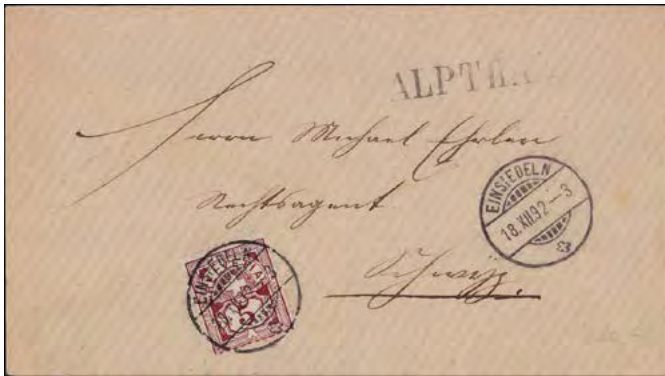 ALPTHAL
Herrn Michael Ehrler
Rechtsagent
Schwyz.
EINSIEDELN
18.XII.92–3
EINSIEDELN
5